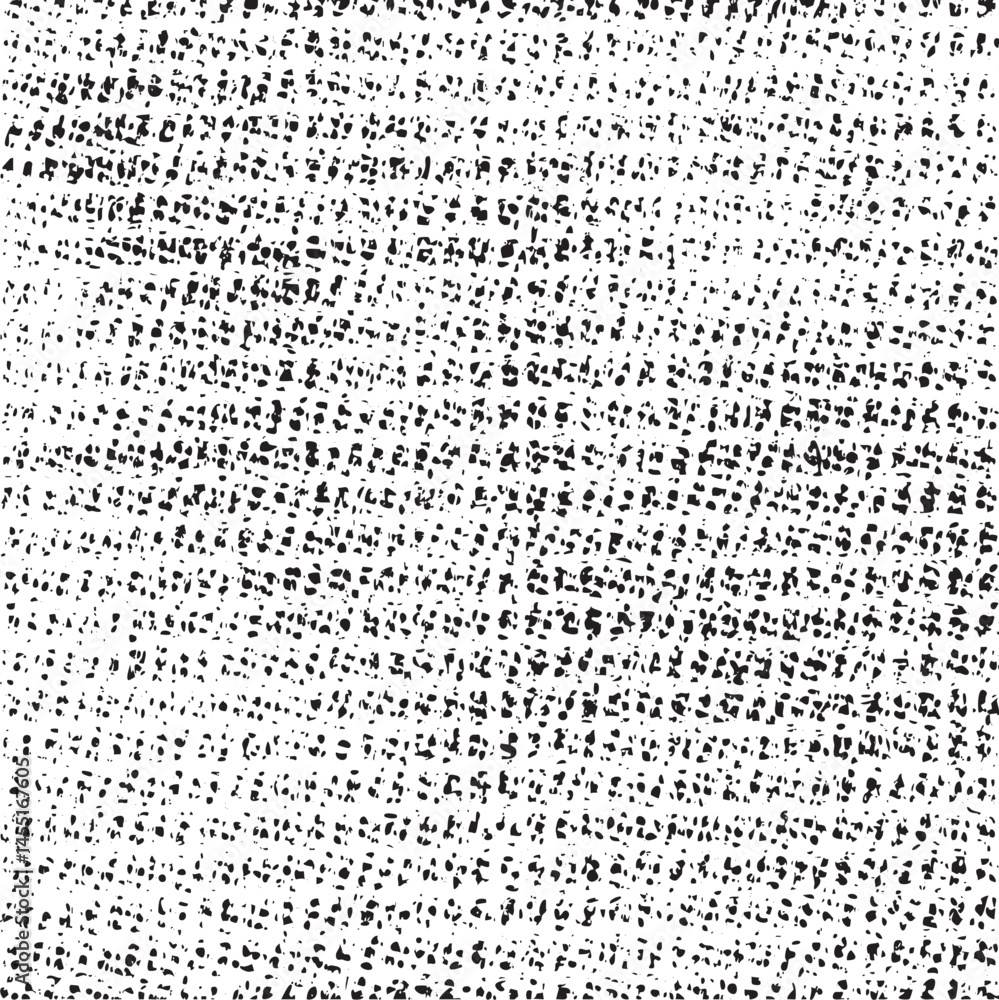 Adobe Stock | #1455167605